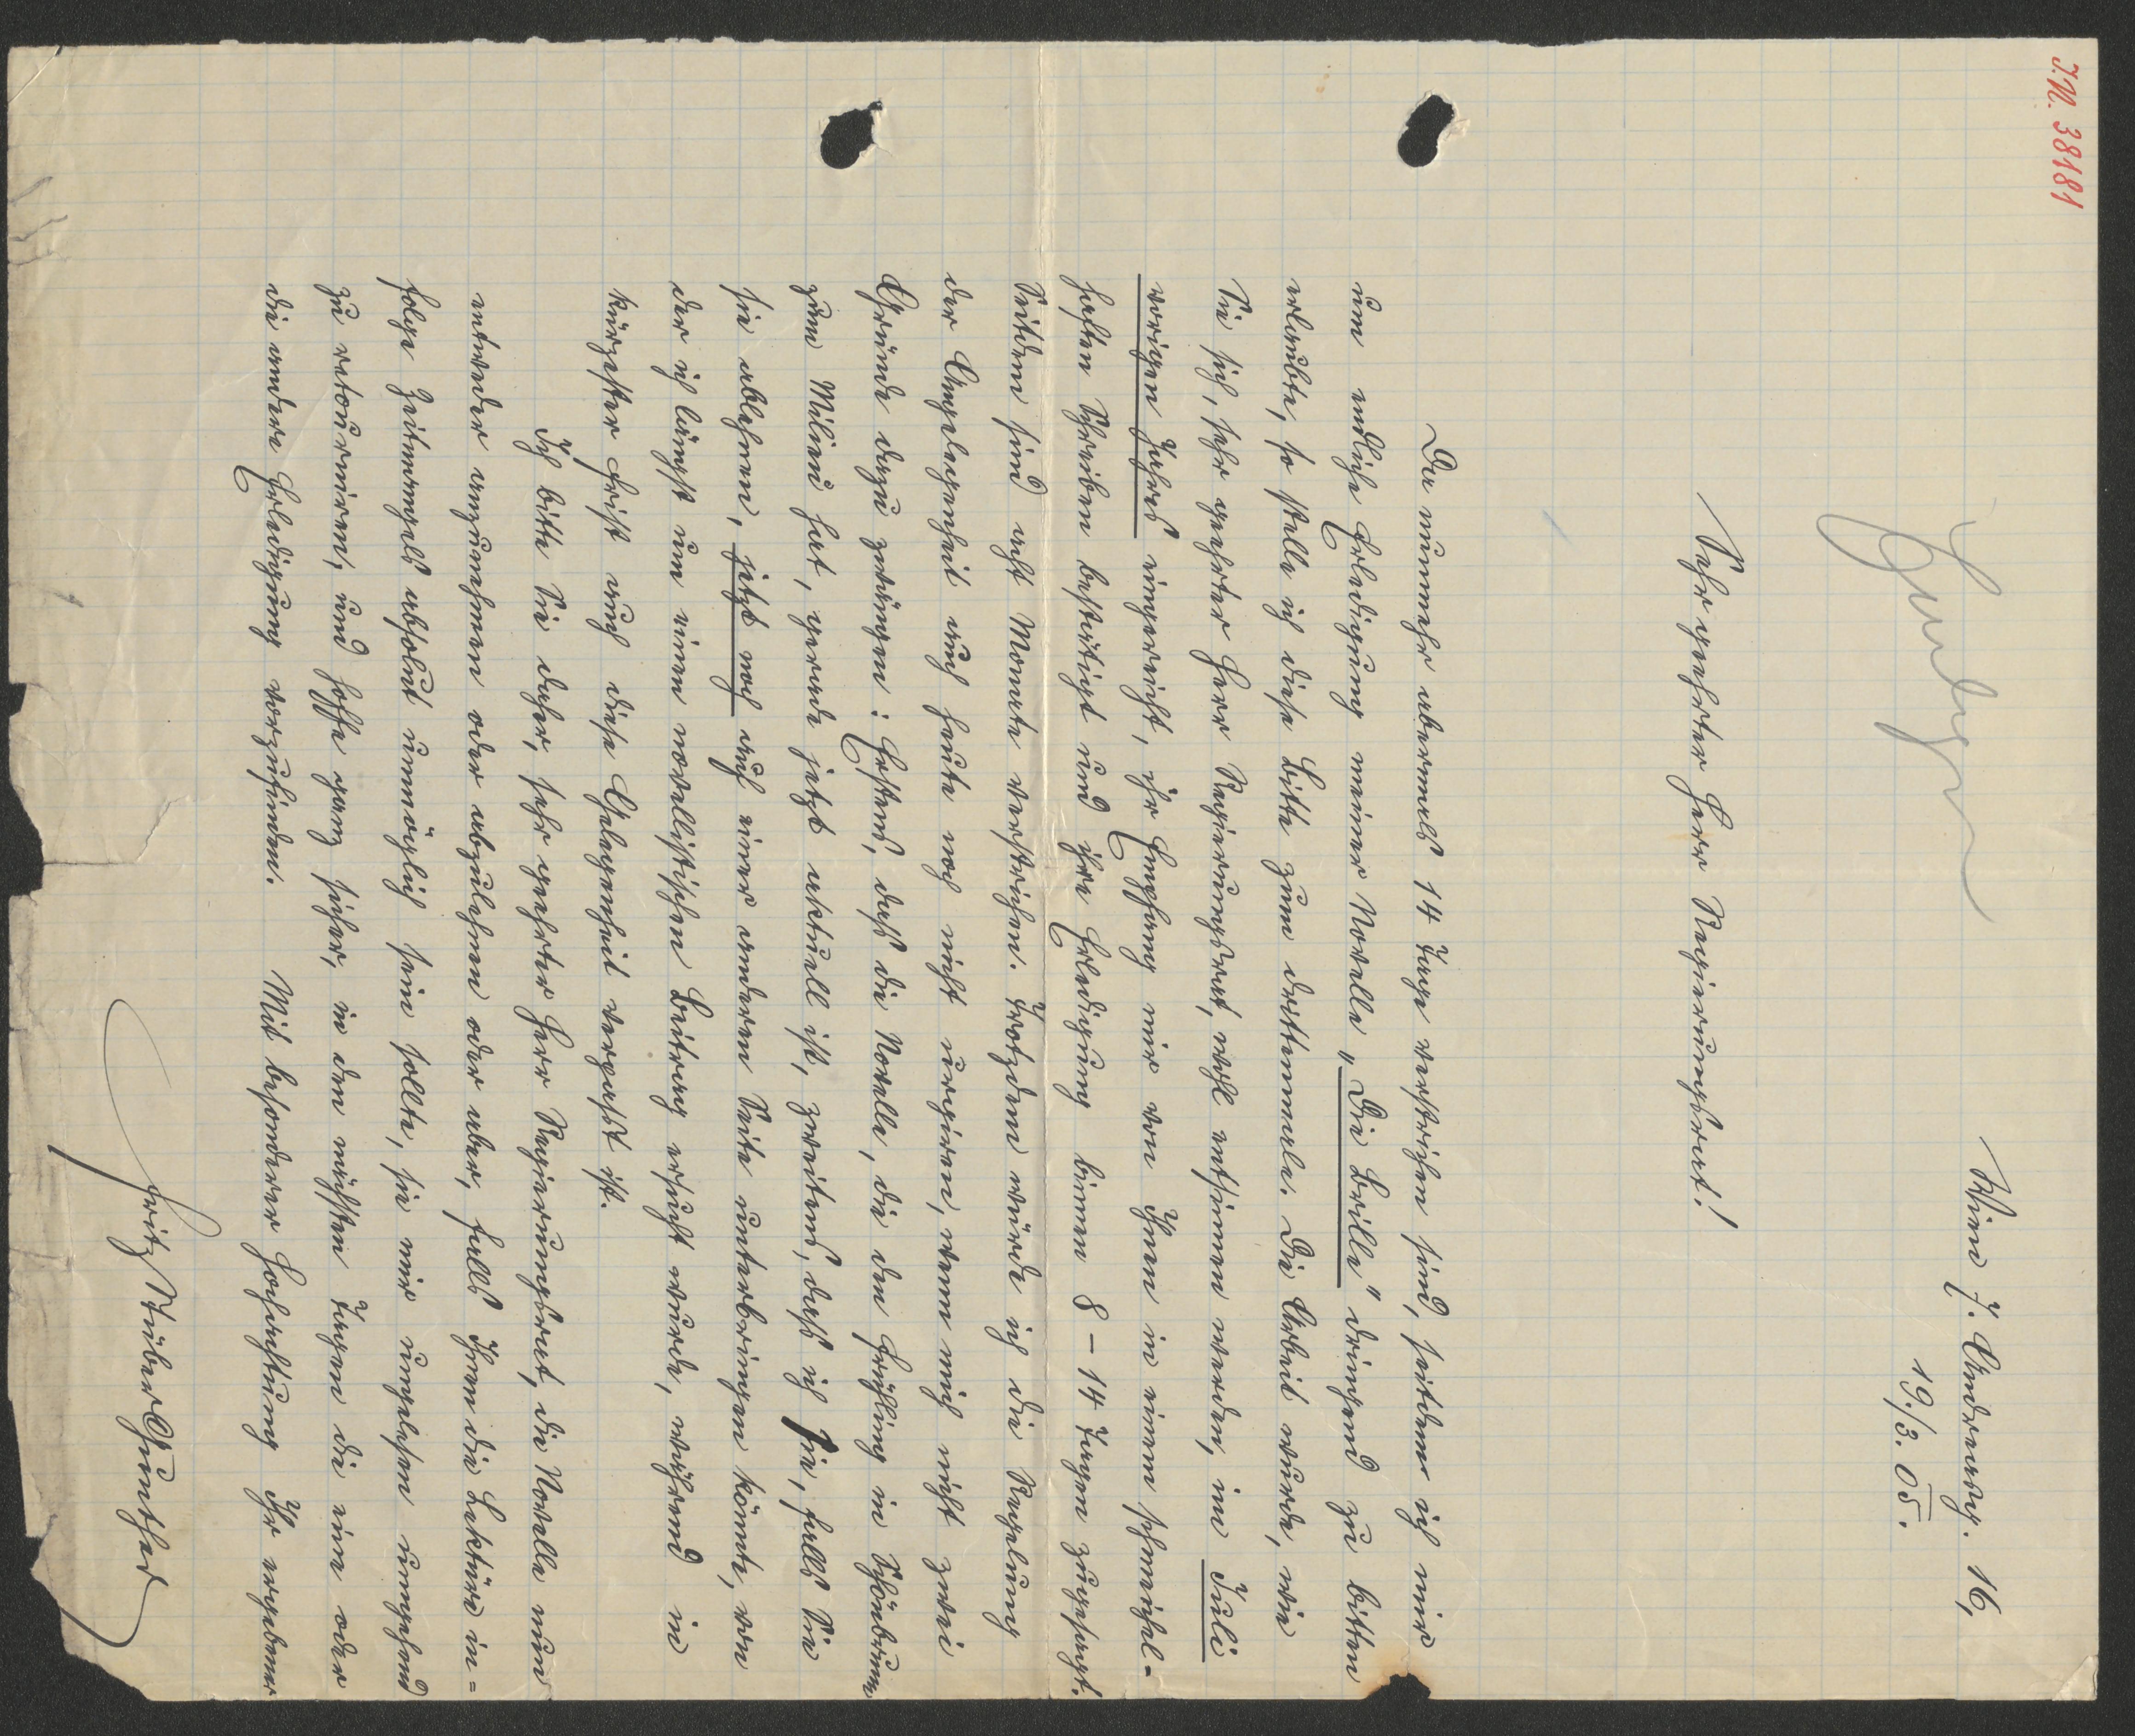 I.N. 38181
Wien 7. Andreasg. 16,
19./3. 05.
Sehr geehrter Herr Regierungsrat!
Da nunmehr abermals 14 Tage verstrichen sind, seitdem ich mir
um endliche Erledigung meiner Novelle „Die Brille" dringend zu bitten
erlaubte, so stelle ich diese Bitte zum drittenmale. Die Arbeit wurde, wie
Sie sich, sehr geehrter Herr Regierungsrat, wohl entsinnen werden, im Juli
vorigen Jahres eingereicht, ihr Empfang mir von Ihnen in einem schmeichel-
haften Schreiben bestätigt und ihre Erledigung binnen 8 - 14 Tagen zugesagt.
Seitdem sind acht Monate verstrichen. Trotzdem würde ich die Regelung
der Angelegenheit auch heute noch nicht urgieren, wenn mich nicht zwei
Gründe dazu zwängen: Erstens, daß die Novelle, die den Frühling in Schönbrunn
zum Milieu hat, gerade jetzt aktuell ist, zweitens, daß ich sie, falls Sie
sie ablehnen, jetzt noch auf einer anderen Seite unterbringen könnte, von
der ich längst um einen novellistischen Beitrag ersucht wurde, während in
kürzester Frist auch diese Gelegenheit verpaßt ist.
Ich bitte Sie daher, sehr geehrter Herr Regierungsrat, die Novelle nun
entweder anzunehmen oder abzulehnen oder aber, falls Ihnen die Lektüre in=
folge Zeitmangels absolut unmöglich sein sollte, sie mir ungelesen umgehend
zu retournieren, und hoffe ganz sicher, in den nächsten Tagen die eine oder
die andere Erledigung vorzufinden. Mit besonderer Hochachtung Ihr ergebener
Fritz Stüber-Gunther